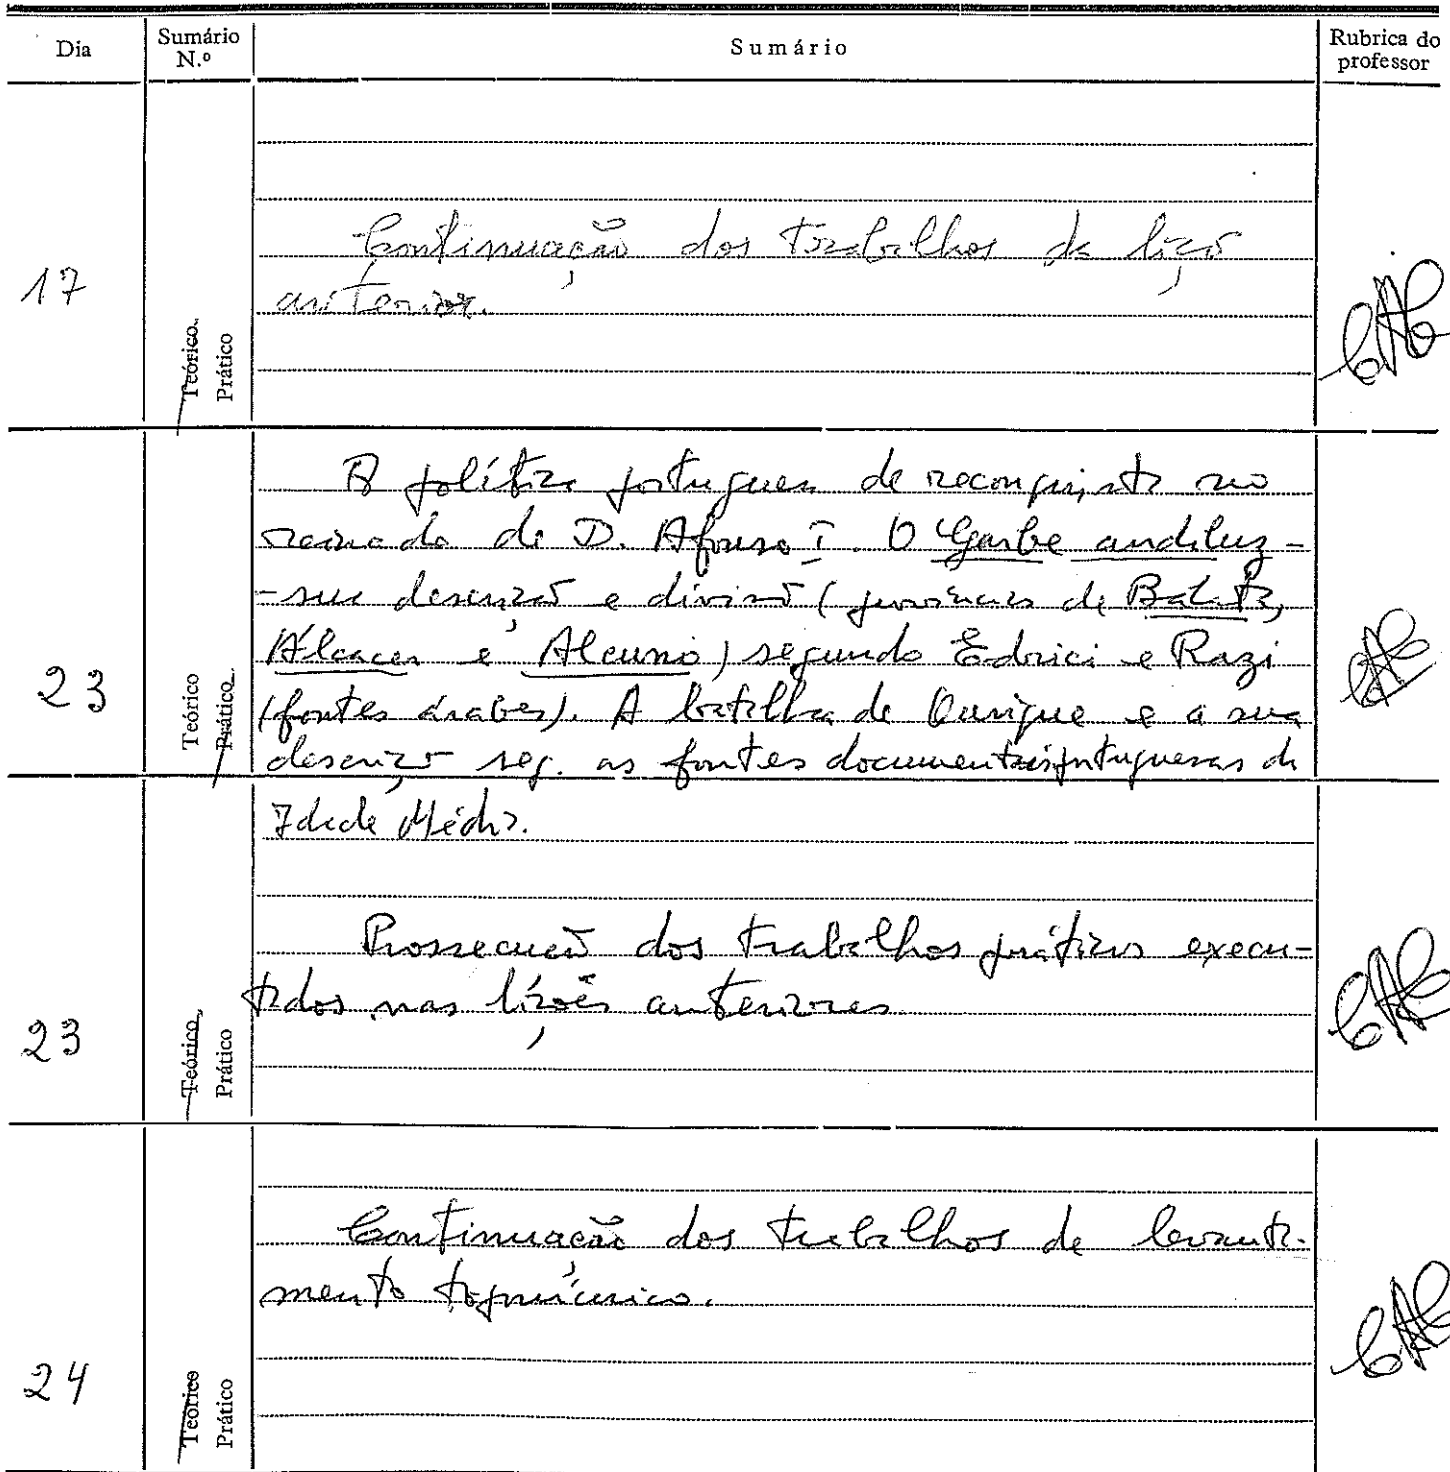 Dia
Sumário N.º
Sumário
Rubrica do professor
17
Teórico
Prático
Continuação dos trabalhos da lição
anterior.
23
Teórico
Prático
A política portuguesa de reconquista no
reinado de D. Afonso I. O Garbe andaluz -
- sua descrição e divisão (províncias de Balata,
Álcacer e ) segundo Edrici e Razi
(fontes árabes). A batalha de Ourique e a sua
descrição seg. as fontes documentais portuguesas da
Idade Média.
23
Teórico
Prático
Prossecução dos trabalhos práticos execu-
tados nas lições anteriores
24
Teórico
Prático
Continuação dos trabalhos de levanta-
mento toponímico.